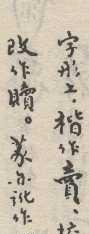 字形上，楷作賣，
改作贖。篆亦訛作